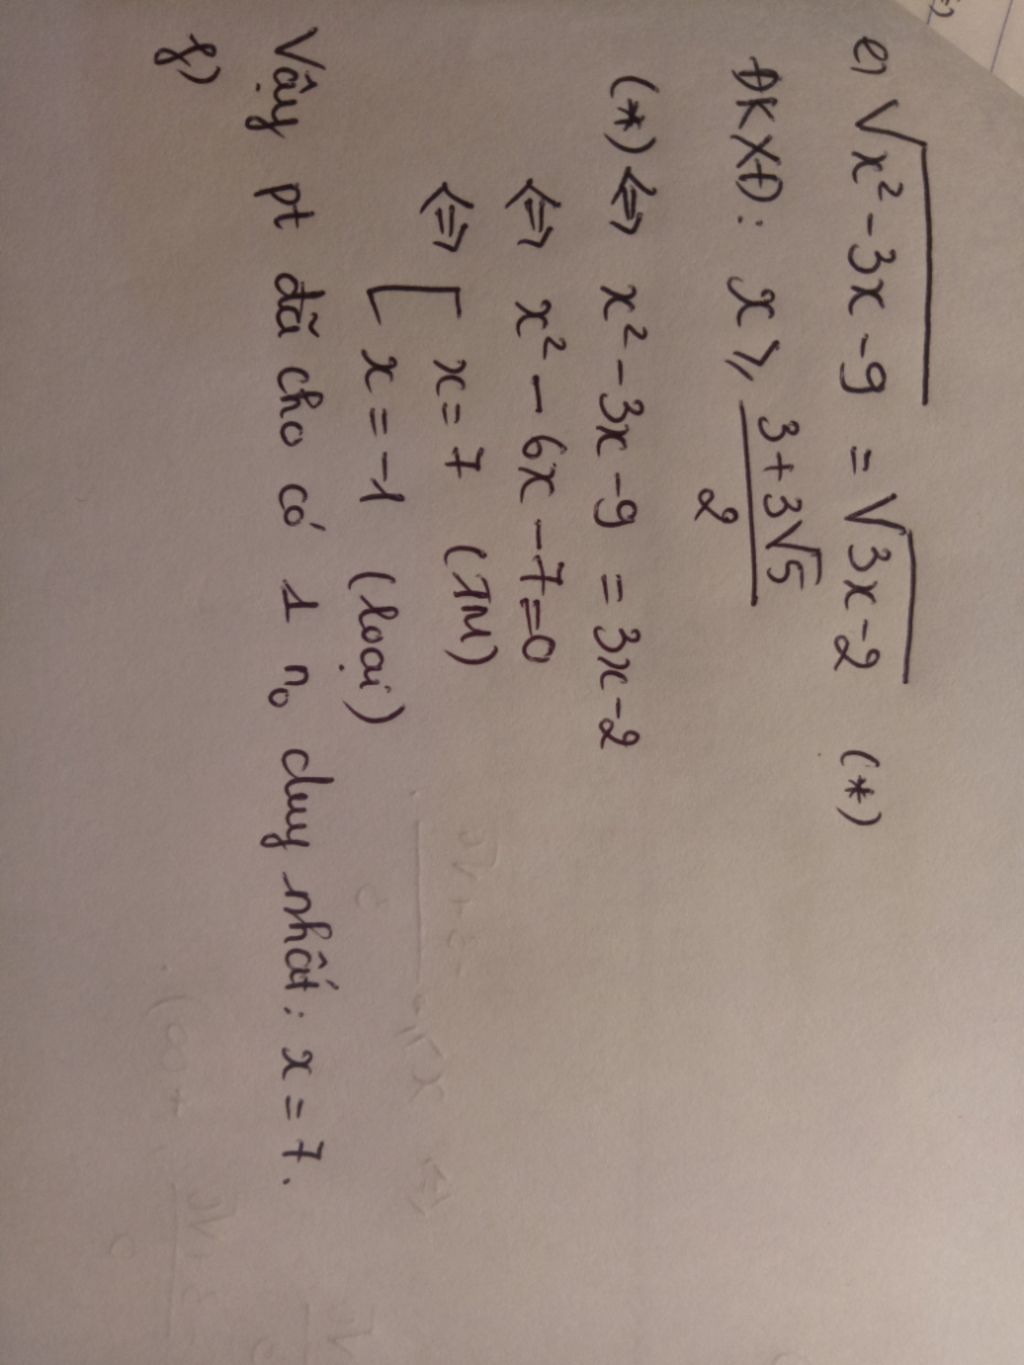 e) √(x² - 3x - 9) = √(3x - 2) (*)
ĐKXĐ: x ⩾ (3 + 3√5)/2
(*) ⇔ x² - 3x - 9 = 3x - 2
⇔ x² - 6x - 7 = 0
⇔ [ x = 7 (TM)
x = -1 (loại)
Vậy pt đã cho có 1 n₀ duy nhất: x = 7.
f)